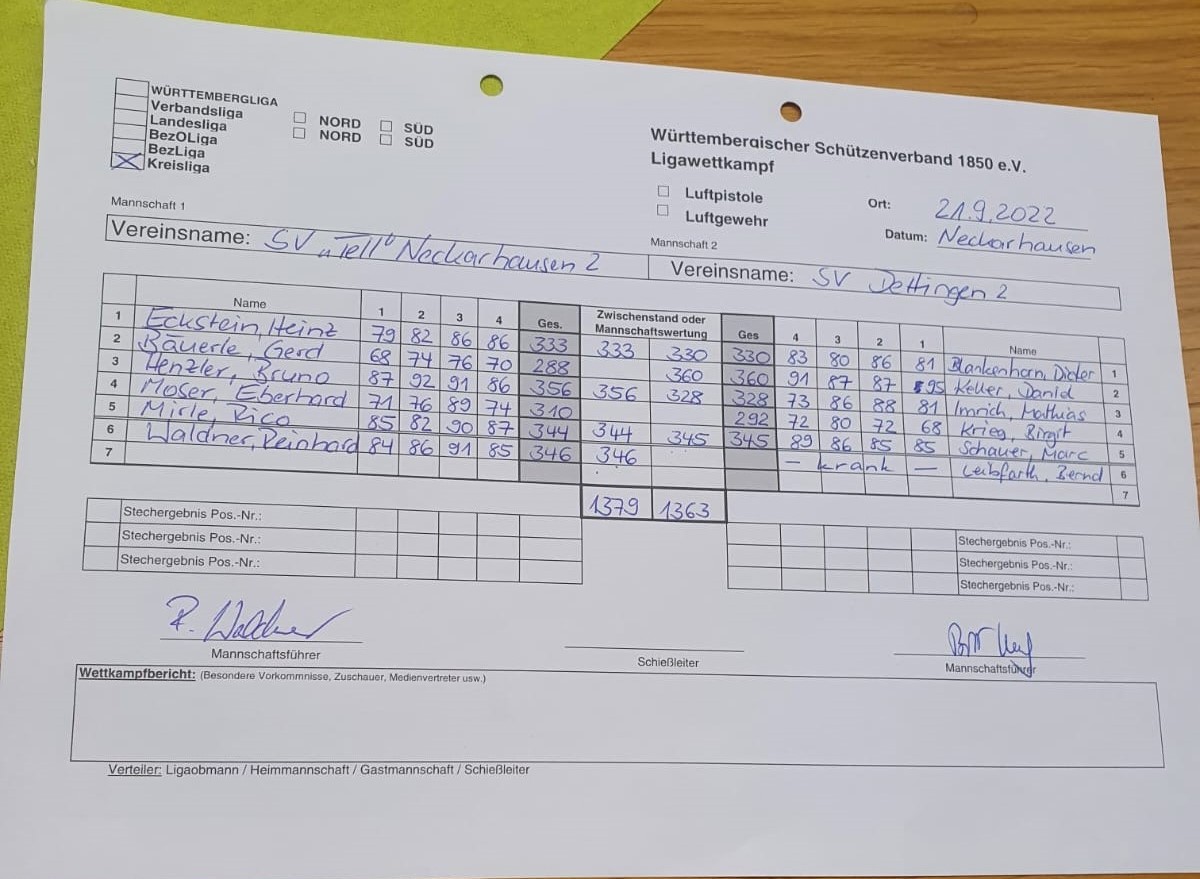 WÜRTTEMBERGLIGA
Verbandsliga ☐ NORD ☐ SÜD
Landesliga ☐ NORD ☐ SÜD
BezOLiga
BezLiga
☒ Kreisliga
Württembergischer Schützenverband 1850 e.V.
Ligawettkampf
☐ Luftpistole
☐ Luftgewehr
Ort: 21.9.2022
Datum: Neckarhausen
Mannschaft 1
Vereinsname: SV „Tell" Neckarhausen 2
Mannschaft 2
Vereinsname: SV Dettingen 2
Name 1 2 3 4 Ges. Zwischenstand oder Mannschaftswertung Ges 4 3 2 1 Name
1 Eckstein, Heinz 79 82 86 86 333 333 330 330 83 80 86 81 Blankenhorn, Dieter 1
2 Bäuerle, Gerd 68 74 76 70 288 360 360 91 87 87 95 Keller, Daniel 2
3 Henzler, Bruno 87 92 91 86 356 356 328 328 73 86 88 81 Imrich, Mathias 3
4 Moser, Eberhard 71 76 89 74 310 292 72 80 72 68 Krieg, Birgit 4
5 Mirle, Rico 85 82 90 87 344 344 345 345 89 86 85 85 Schauer, Marc 5
6 Waldner, Reinhard 84 86 91 85 346 346 – krank – Leibfarth, Bernd 6
7 7
1379 1363
Stechergebnis Pos.-Nr.: Stechergebnis Pos.-Nr.:
Stechergebnis Pos.-Nr.: Stechergebnis Pos.-Nr.:
Stechergebnis Pos.-Nr.: Stechergebnis Pos.-Nr.:
R. Waldner
Mannschaftsführer Schießleiter Mannschaftsführer
Wettkampfbericht: (Besondere Vorkommnisse, Zuschauer, Medienvertreter usw.)
Verteiler: Ligaobmann / Heimmannschaft / Gastmannschaft / Schießleiter